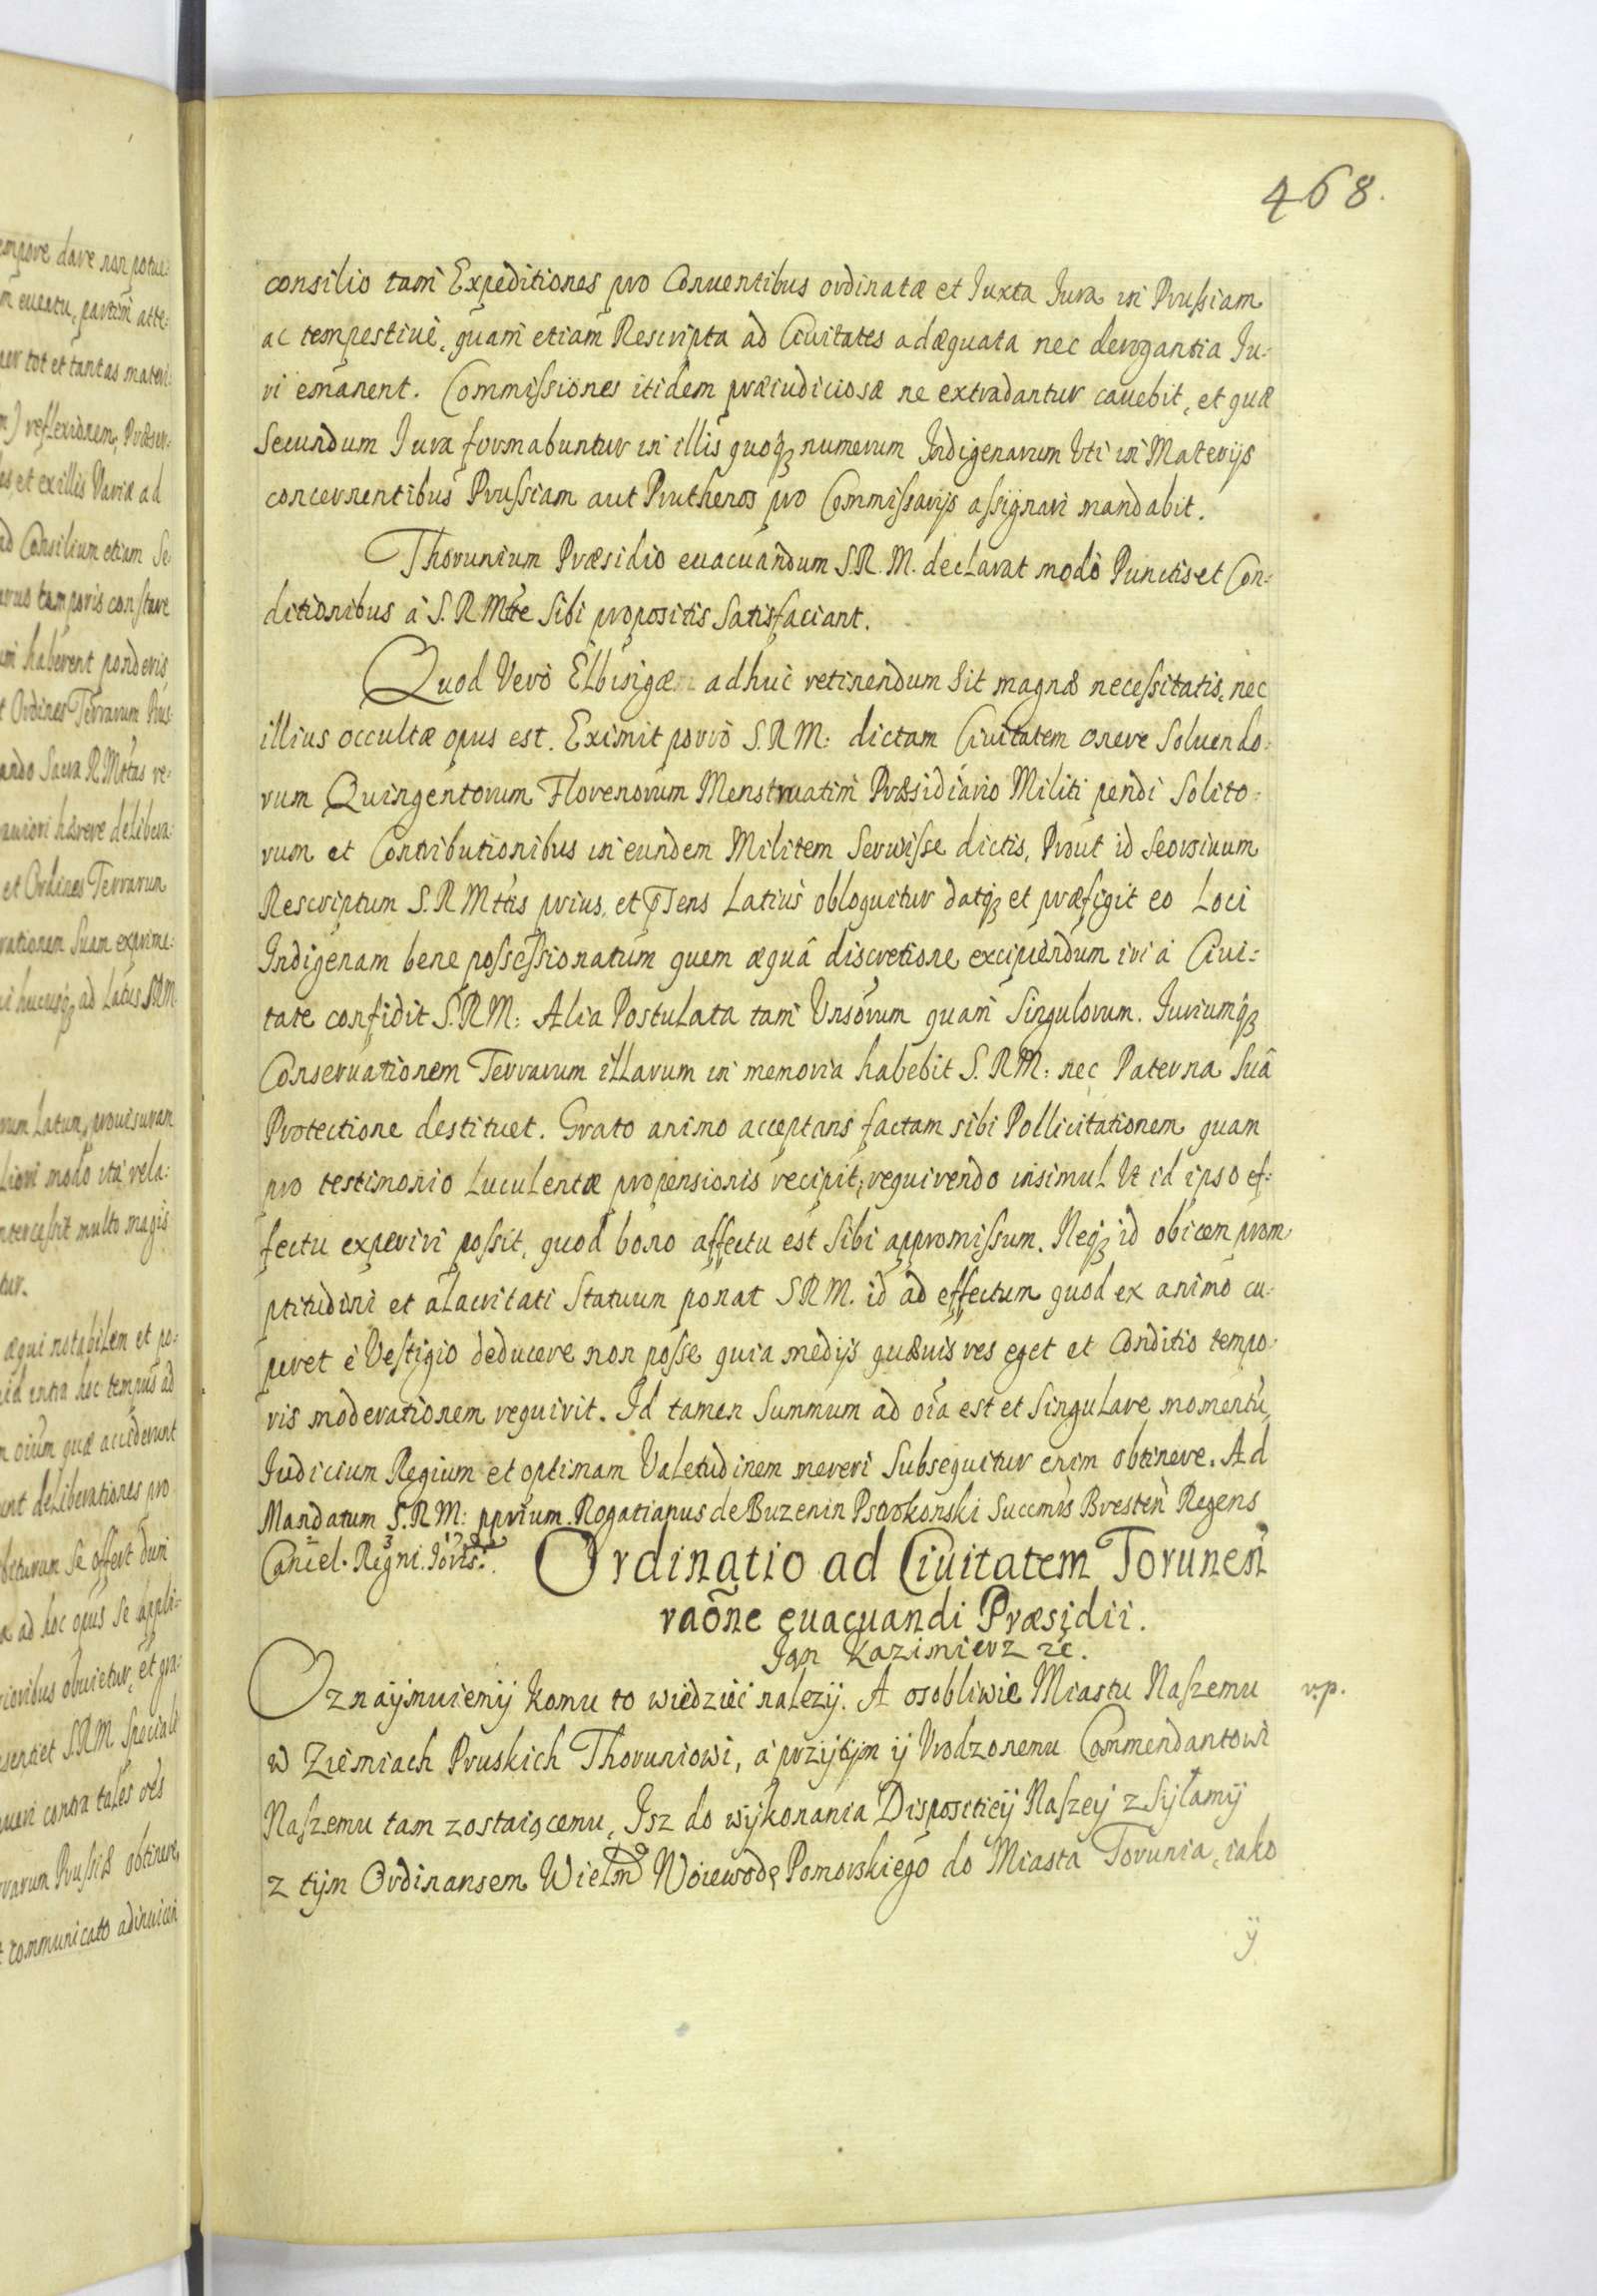 468.
consilio tam Expeditiones pro Conuentibus ordinatæ et Iuxta Iura in Prussiam
ac tempestiue, quam etiam Rescripta ad Ciuitates adæquata nec derogantia Iu-
ri emanent. Commissiones itidem præiudiciosæ ne extradantur cauebit, et quæ
Secundum Iura formabuntur in illis quoqꝫ numerum Indigenarum Vti in Materijs
concernentibus Prussiam aut Pruthenos pro Commissarijs assignari mandabit.
Thorunium Præsidio euacuandum S.R.M. declarat modò Punctis et Con:
ditionibus à S.RMtte Sibi propositis Satisfaciant.
Quod Verò Elbingæ adhuc retinendum Sit magnæ necessitatis, nec
illius occultæ opus est. Eximit porrò S.RM: dictam Ciuitatem onere Soluendo:
rum Quingentorum Florenorum Menstruatim Præsidiario Militi pendi Solito:
rum et Contributionibus in eundem Militem Serwisse dictis, Prout id Seorsiuum
Rescriptum S.RMttis prius, et p̄sens Latius obloquitur datqꝫ et præfigit eo Loci
Indigenam bene possessionatum quem æquâ discretione excipiendum iri à Ciui:
tate confidit S.RM: Alia Postulata tam Vnsorum quam Singulorum. Iuriumqꝫ
Conseruationem Terrarum illarum in memoria habebit S.RM: nec Paterna Suâ
Protectione destituet. Grato animo acceptans factam sibi Pollicitationem quam
pro testimonio Luculentæ propensionis recipit, requirendo insimul Vt id ipso ef:
fectu experiri possit, quod bono affectu est Sibi appromissum. Neqꝫ id obicem prom
ptitudini et alacritati Statuum ponat SRM. id ad effectum quod ex animo cu:
peret è Vestigio deducere non posse quia medijs quæuis res eget et Conditio tempo:
ris moderationem requirit. Id tamen Summum ad oĩa est et Singulare momentũ,
Iudicium Regium et optimam Valetudinem mereri Subsequitur enim obtinere. Ad
Mandatum S.RM: pprium. Rogatianus de Buzenin Pstrokonski Succmĩs Bresteñ Regens
Cañcel. Regni.
Ordinatio ad Ciuitatem Toruneñ
raõne euacuandi Præsidii.
Jan Kazimierz ꝛc.
Oznaijmuiemij komu to wiedzieć nalezij. A osobliwie Miastu Naszemu
v.p.
w Ziemiach Pruskich Thoruniowi, a przijtijm ij Vrodzonemu Commendantowi
Naszemu tam zostaiącemu, Isz do wijkonania Dispositieij Naszeij zsijłamij
z tijm Ordinansem Wielmo Woiewodę Pomorskiego do Miasta Torunia, iako
ij